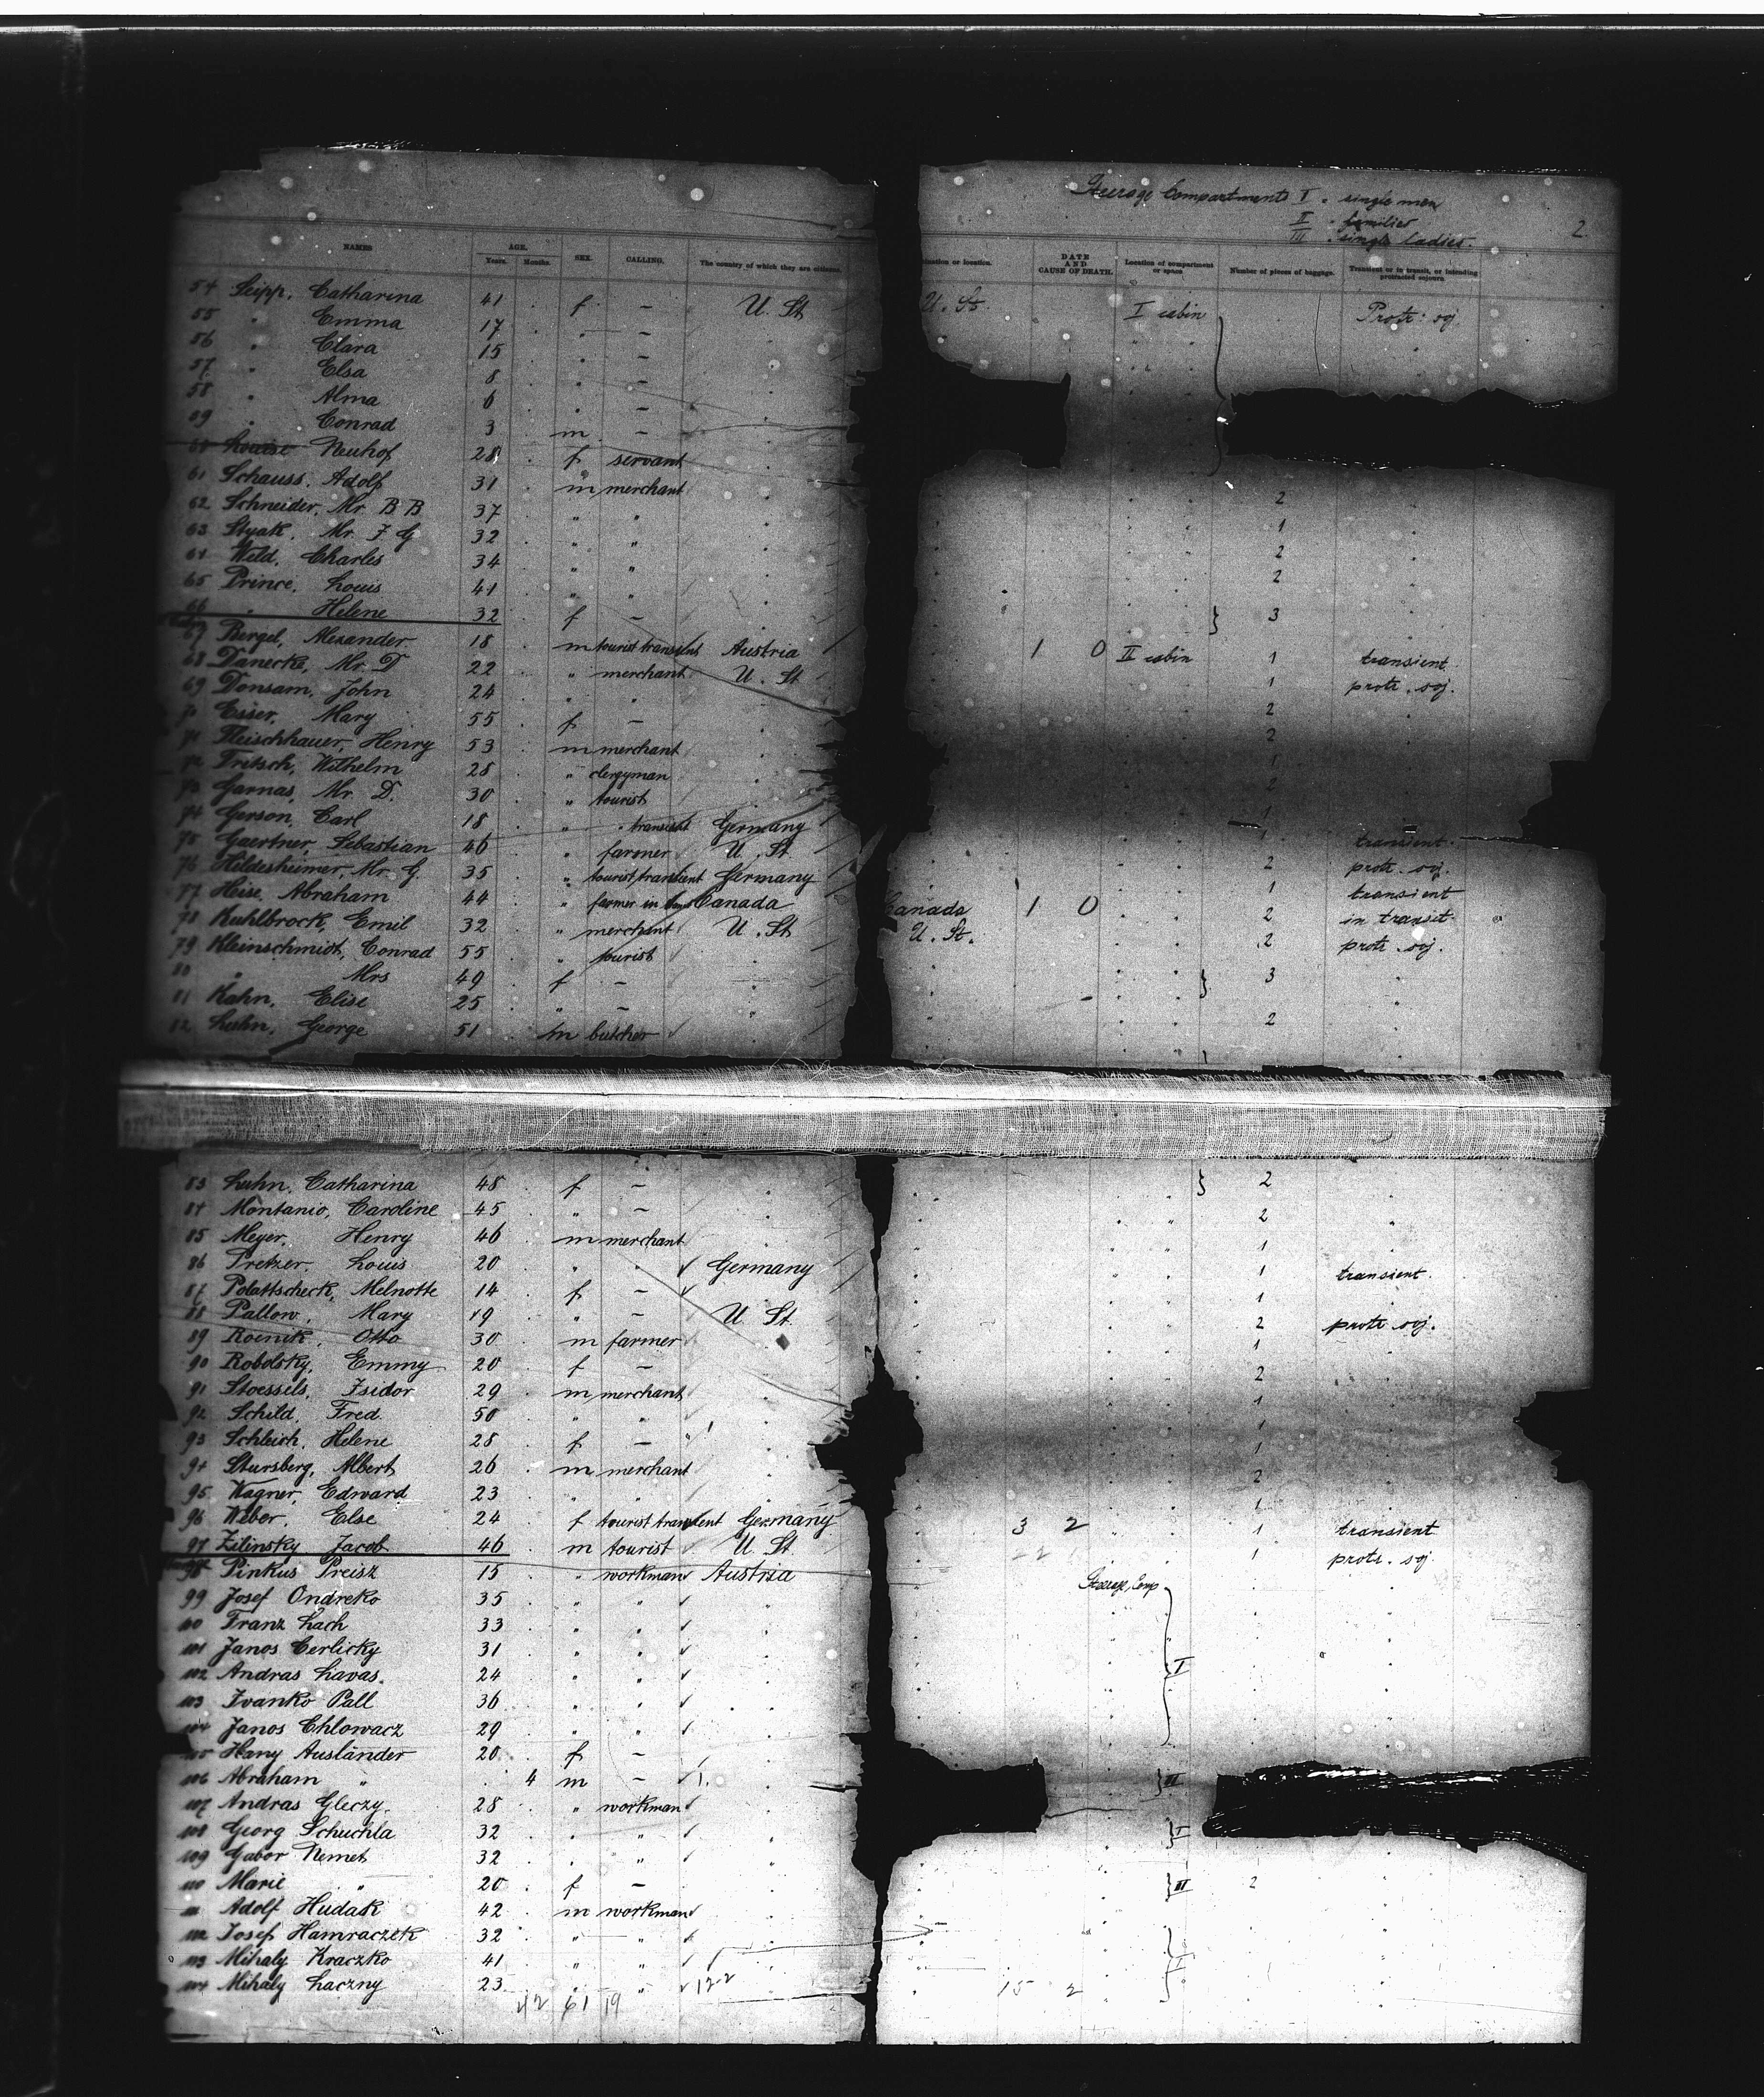 Steerage Compartments I . single men
II . families
III . single Ladies.
2
NAMES AGE. Years. Months. SEX. CALLING. The country of which they are citizens. DATE AND CAUSE OF DEATH. Location of compartment or space Number of pieces of baggage. Transient or in transit, or intending protracted sojourn.
54 Seipp, Catharina 41 f — U. St U. St. I cabin Protr. soj.
55 " Emma 17 " —
56 " Clara 15 " —
57 " Elsa 8 " —
58 " Alma 6 " —
59 " Conrad 3 m —
60 Louise Neuhof 28 f servant
61 Schauss, Adolf 31 m merchant 2
62 Schneider, Mr. B B 37 " " 1
63 Styak, Mr. F G 32 " " 2
64 Weld, Charles 34 " " 2
65 Prince, Louis 41 " "
66 " Helene 32 f — 3
67 Bergel, Alexander 18 m tourist transient Austria 1 0 II cabin 1 transient
68 Danecke, Mr. D 22 " merchant U. St 1 protr. soj.
69 Donsam, John 24 " " 2
70 Esser, Mary 55 f — 2
71 Fleischhauer, Henry 53 m merchant 1
72 Fritsch, Wilhelm 28 " clergyman 2
73 Garnas, Mr. D. 30 " tourist 1
74 Gerson, Carl 18 " " transient Germany 1 transient
75 Gaertner, Sebastian 46 " farmer U. St 2 protr. soj.
76 Hildesheimer, Mr. G. 35 " tourist transient Germany 1 transient
77 Heise, Abraham 44 " farmer in Canada Canada 1 0 2 in transit
78 Kuhlbrock, Emil 32 " merchant U. St U. St. 2 protr. soj.
79 Kleinschmidt, Conrad 55 " tourist
80 " Mrs 49 f — 3
81 Kahn, Elise 25 " — 2
82 Luhn, George 51 m butcher
83 Luhn, Catharina 48 f — 2
84 Montanio, Caroline 45 " — 2
85 Meyer, Henry 46 m merchant 1
86 Pretzer, Louis 20 " " Germany 1 transient.
87 Polattscheck, Melnotte 14 f — 1
88 Pallow, Mary 19 " — U. St. 2 protr soj.
89 Roenik, Otto 30 m farmer 1
90 Robolsky, Emmy 20 f — 2
91 Stoessels, Isidor 29 m merchant 1
92 Schild, Fred. 50 " " 1
93 Schleich, Helene 28 f — 1
94 Stursberg, Albert 26 m merchant 2
95 Wagner, Edward 23 " " 1
96 Weber, Else 24 f tourist transient Germany 3 2 1 transient
97 Zilinsky Jacob 46 m tourist U. St. 1 protr. soj.
98 Pinkus Preisz 15 " workman Austria Steerage, Comp
99 Josef Ondreko 35 " "
100 Franz Lach 33 " "
101 Janos Cerlicky 31 " "
102 Andras Lavas. 24 " " I
103 Ivanko Pall 36 " "
104 Janos Chlowacz 29 " "
105 Hany Ausländer 20 f —
106 Abraham " 4 m — II
107 Andras Gleczy. 28 " workman
108 Georg Schuchla 32 " " I
109 Gabor Nemet 32 " "
110 Marie " 20 f — II 2
111 Adolf Hudak 42 m workman
112 Josef Hamraczek 32 " "
113 Mihaly Kraczko 41 " "
114 Mihaly Laczny 23 " " 15 2
42 61 19